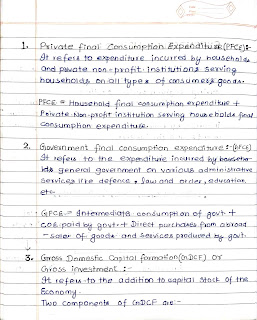 1. Private final Consumption Expenditure(PFCE):-
It refers to expenditure incurred by households
and private non-profit institutions serving
households on all types of consumers goods.
PFCE = Household final consumption expenditure +
Private Non-profit institution serving households final
Consumption expenditure.
2. Government final consumption expenditure:-(GFCE)
It refers to the expenditure incurred by
general government on various administrative
services like defence, law and order, education
etc.
GFCE = Intermediate consumption of govt +
COE paid by govt + Direct purchases from abroad
- Sales of goods and services produced by govt.
3. Gross Domestic Capital formation(GDCF) or
Gross investment:-
It refers to the addition to capital stock of the
Economy.
Two components of GDCF are:-